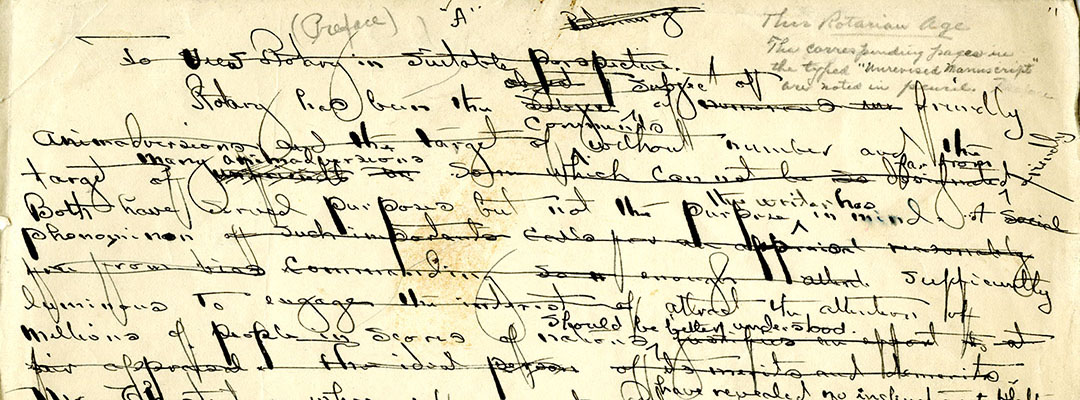 (Preface) "A"
This Rotarian Age
The corresponding pages in
the typed "Unrevised Manuscript"
are noted in pencil.
To view Rotary in suitable perspective.
Rotary has been the subject of friendly
comments
animadversions and the target of without number and the
many animadversions far from
target of some which can not be friendly
the writer has
Both have served purposes but not the purpose in mind. A social
phenominon of such importants calls for an appraisal reasonably
free from bias commanding enough sufficiently
lyminous to engage the interest of attract the attention of
should be better understood.
millions of people in scores of nations justifies an effort at
fair appraisal the ideal person of its merits and demerits
have revealed no